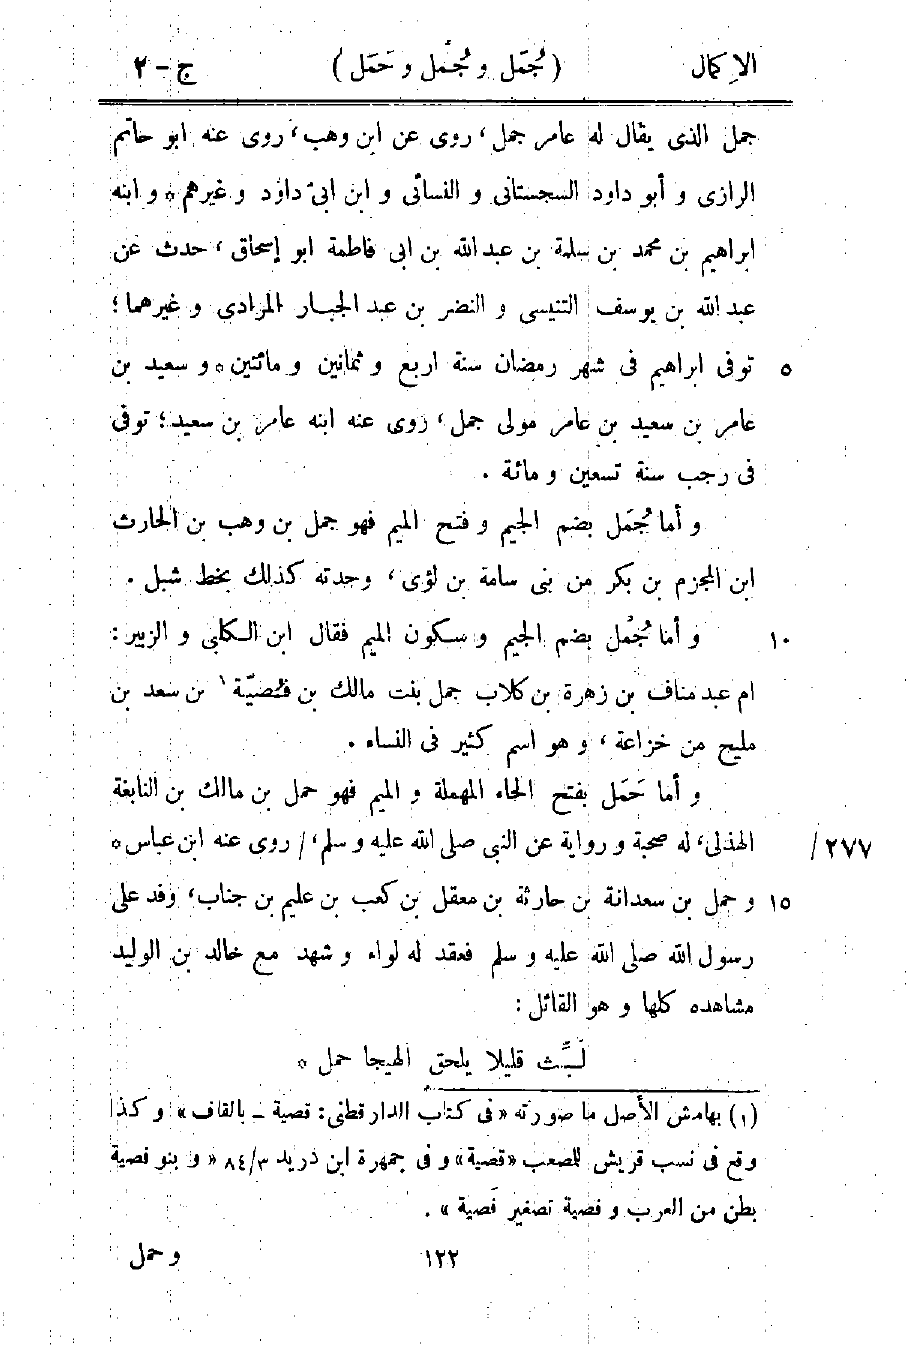 الإكمال (جُمَل و جُمْل و حَمَل) ج - ٢
جمل الذى يقال له عامر جمل، روى عن ابن وهب، روى عنه ابو حاتم
الرازى و أبو داود السجستانى و النسائى و ابن ابى داود و غيرهم * و ابنه
ابراهيم بن محمد بن سلمة بن عبد الله بن ابى فاطمة ابو إسحاق، حدث عن
عبد الله بن يوسف التنيسى و النضر بن عبد الجبار المرادى و غيرهما؛
٥ توفى ابراهيم فى شهر رمضان سنة اربع و ثمانين و مائتين * و سعيد بن
عامر بن سعيد بن عامر مولى جمل، روى عنه ابنه عامر بن سعيد؛ توفى
فى رجب سنة تسعين و مائة .
و أما جُمَل بضم الجيم و فتح الميم فهو جمل بن وهب بن الحارث
ابن المجزم بن بكر من بنى سامة بن لؤى، وجدته كذلك بخط شبل .
١٠ و أما جُمْل بضم الجيم و سكون الميم فقال ابن الكلبى و الزبير:
ام عبد مناف بن زهرة بن كلاب جمل بنت مالك بن فُصَيّة ١ بن سعد بن
مليح من خزاعة، و هو اسم كثير فى النساء .
و أما حَمَل بفتح الحاء المهملة و الميم فهو حمل بن مالك بن النابغة
٢٧٧/ الهذلى، له صحبة و رواية عن النبى صلى الله عليه و سلم، / روى عنه ابن عباس *
١٥ و حمل بن سعدانة بن حارثة بن معقل بن كعب بن عليم بن جناب، وفد على
رسول الله صلى الله عليه و سلم فعقد له لواء و شهد مع خالد بن الوليد
مشاهده كلها و هو القائل:
لَبِّث قليلا يلحق الهيجا حمل *
(١) بهامش الأصل ما صورته «فى كتاب الدارقطنى: قصية ـ بالقاف» و كذا
وقع فى نسب قريش للصعب «قصية» و فى جمهرة ابن دريد ٨٤/٣ « و بنو فصية
بطن من العرب و فصية تصغير فَصية » .
١٢٢ و حمل